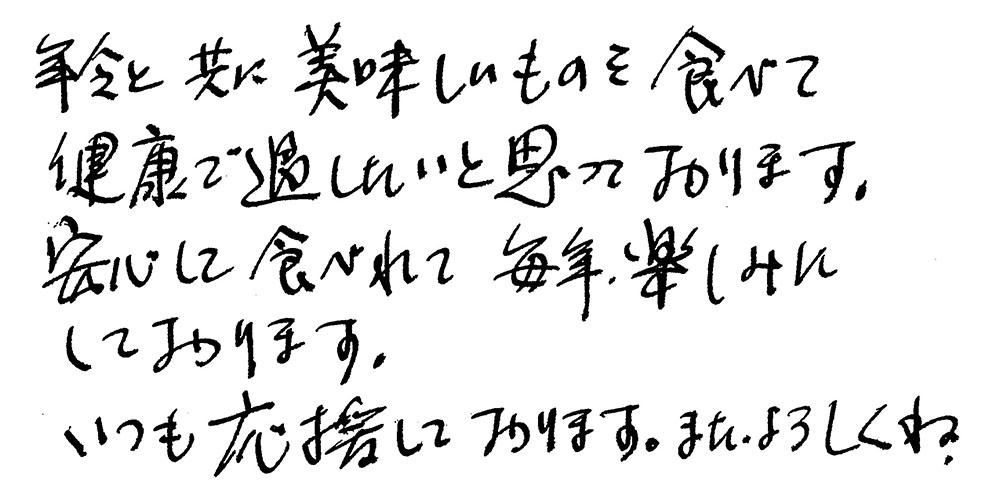 年令と共に美味しいものを食べて
健康で過したいと思っております。
安心して食べれて毎年、楽しみに
しております。
いつも応援しております。また、よろしくね。